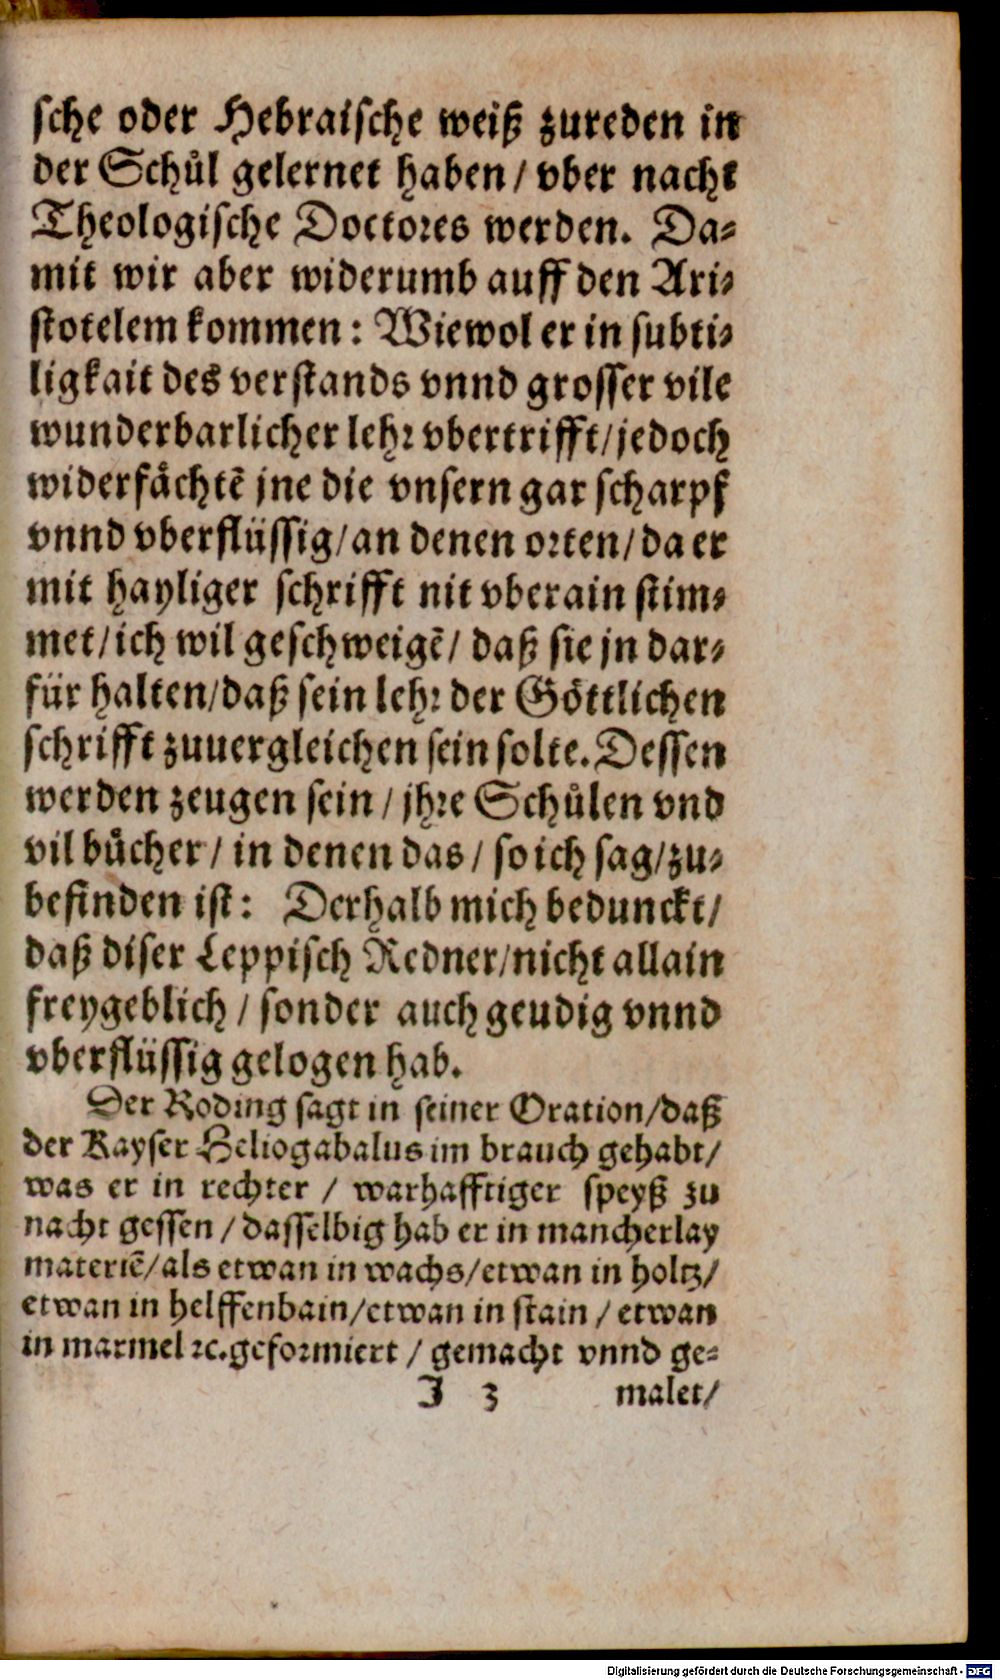 sche oder Hebraische weiß zureden in
der Schůl gelernet haben / vber nacht
Theologische Doctores werden. Da⸗
mit wir aber widerumb auff den Ari⸗
stotelem kommen: Wiewol er in subti⸗
ligkait des verstands vnnd grosser vile
wunderbarlicher lehꝛ vbertrifft / jedoch
widerfåchtẽ jne die vnsern gar scharpf
vnnd vberflüssig / an denen oꝛten / da er
mit hayliger schrifft nit vberain stim⸗
met / ich wil geschweigẽ / daß sie jn dar⸗
für halten / daß sein lehꝛ der Göttlichen
schrifft zuuergleichen sein solte. Dessen
werden zeugen sein / jhꝛe Schůlen vnd
vil bůcher / in denen das / so ich sag / zu⸗
befinden ist: Derhalb mich bedunckt /
daß diser Leppisch Redner / nicht allain
freygeblich / sonder auch geudig vnnd
vberflüssig gelogen hab.
Der Roding sagt in seiner Oration / daß
der Kayser Heliogabalus im brauch gehabt /
was er in rechter / warhafftiger speyß zu
nacht gessen / dasselbig hab er in mancherlay
materiẽ / als etwan in wachs / etwan in holtz /
etwan in helffenbain / etwan in stain / etwan
in marmel ꝛc. gefoꝛmiert / gemacht vnnd ge⸗
J 3 malet /
Digitalisierung gefördert durch die Deutsche Forschungsgemeinschaft - DFG